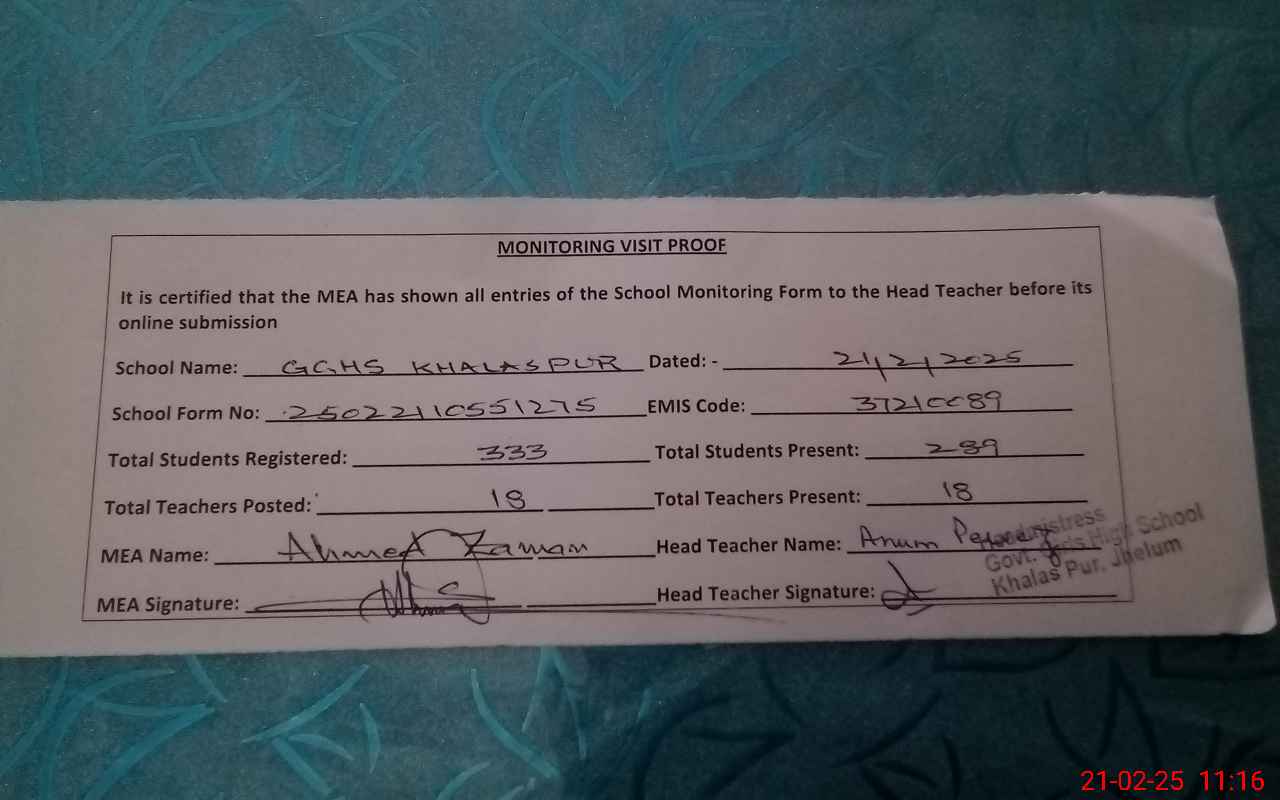 MONITORING VISIT PROOF
It is certified that the MEA has shown all entries of the School Monitoring Form to the Head Teacher before its
online submission
School Name: GGHS KHALASPUR Dated: - 21/2/2025
School Form No: 25022110551275 EMIS Code: 37210089
Total Students Registered: 333 Total Students Present: 289
Total Teachers Posted: 18 Total Teachers Present: 18
MEA Name: Ahmed Zaman Head Teacher Name: Anum
Headmistress
Govt. Girls High School
Khalas Pur, Jhelum
MEA Signature: Head Teacher Signature:
21-02-25 11:16